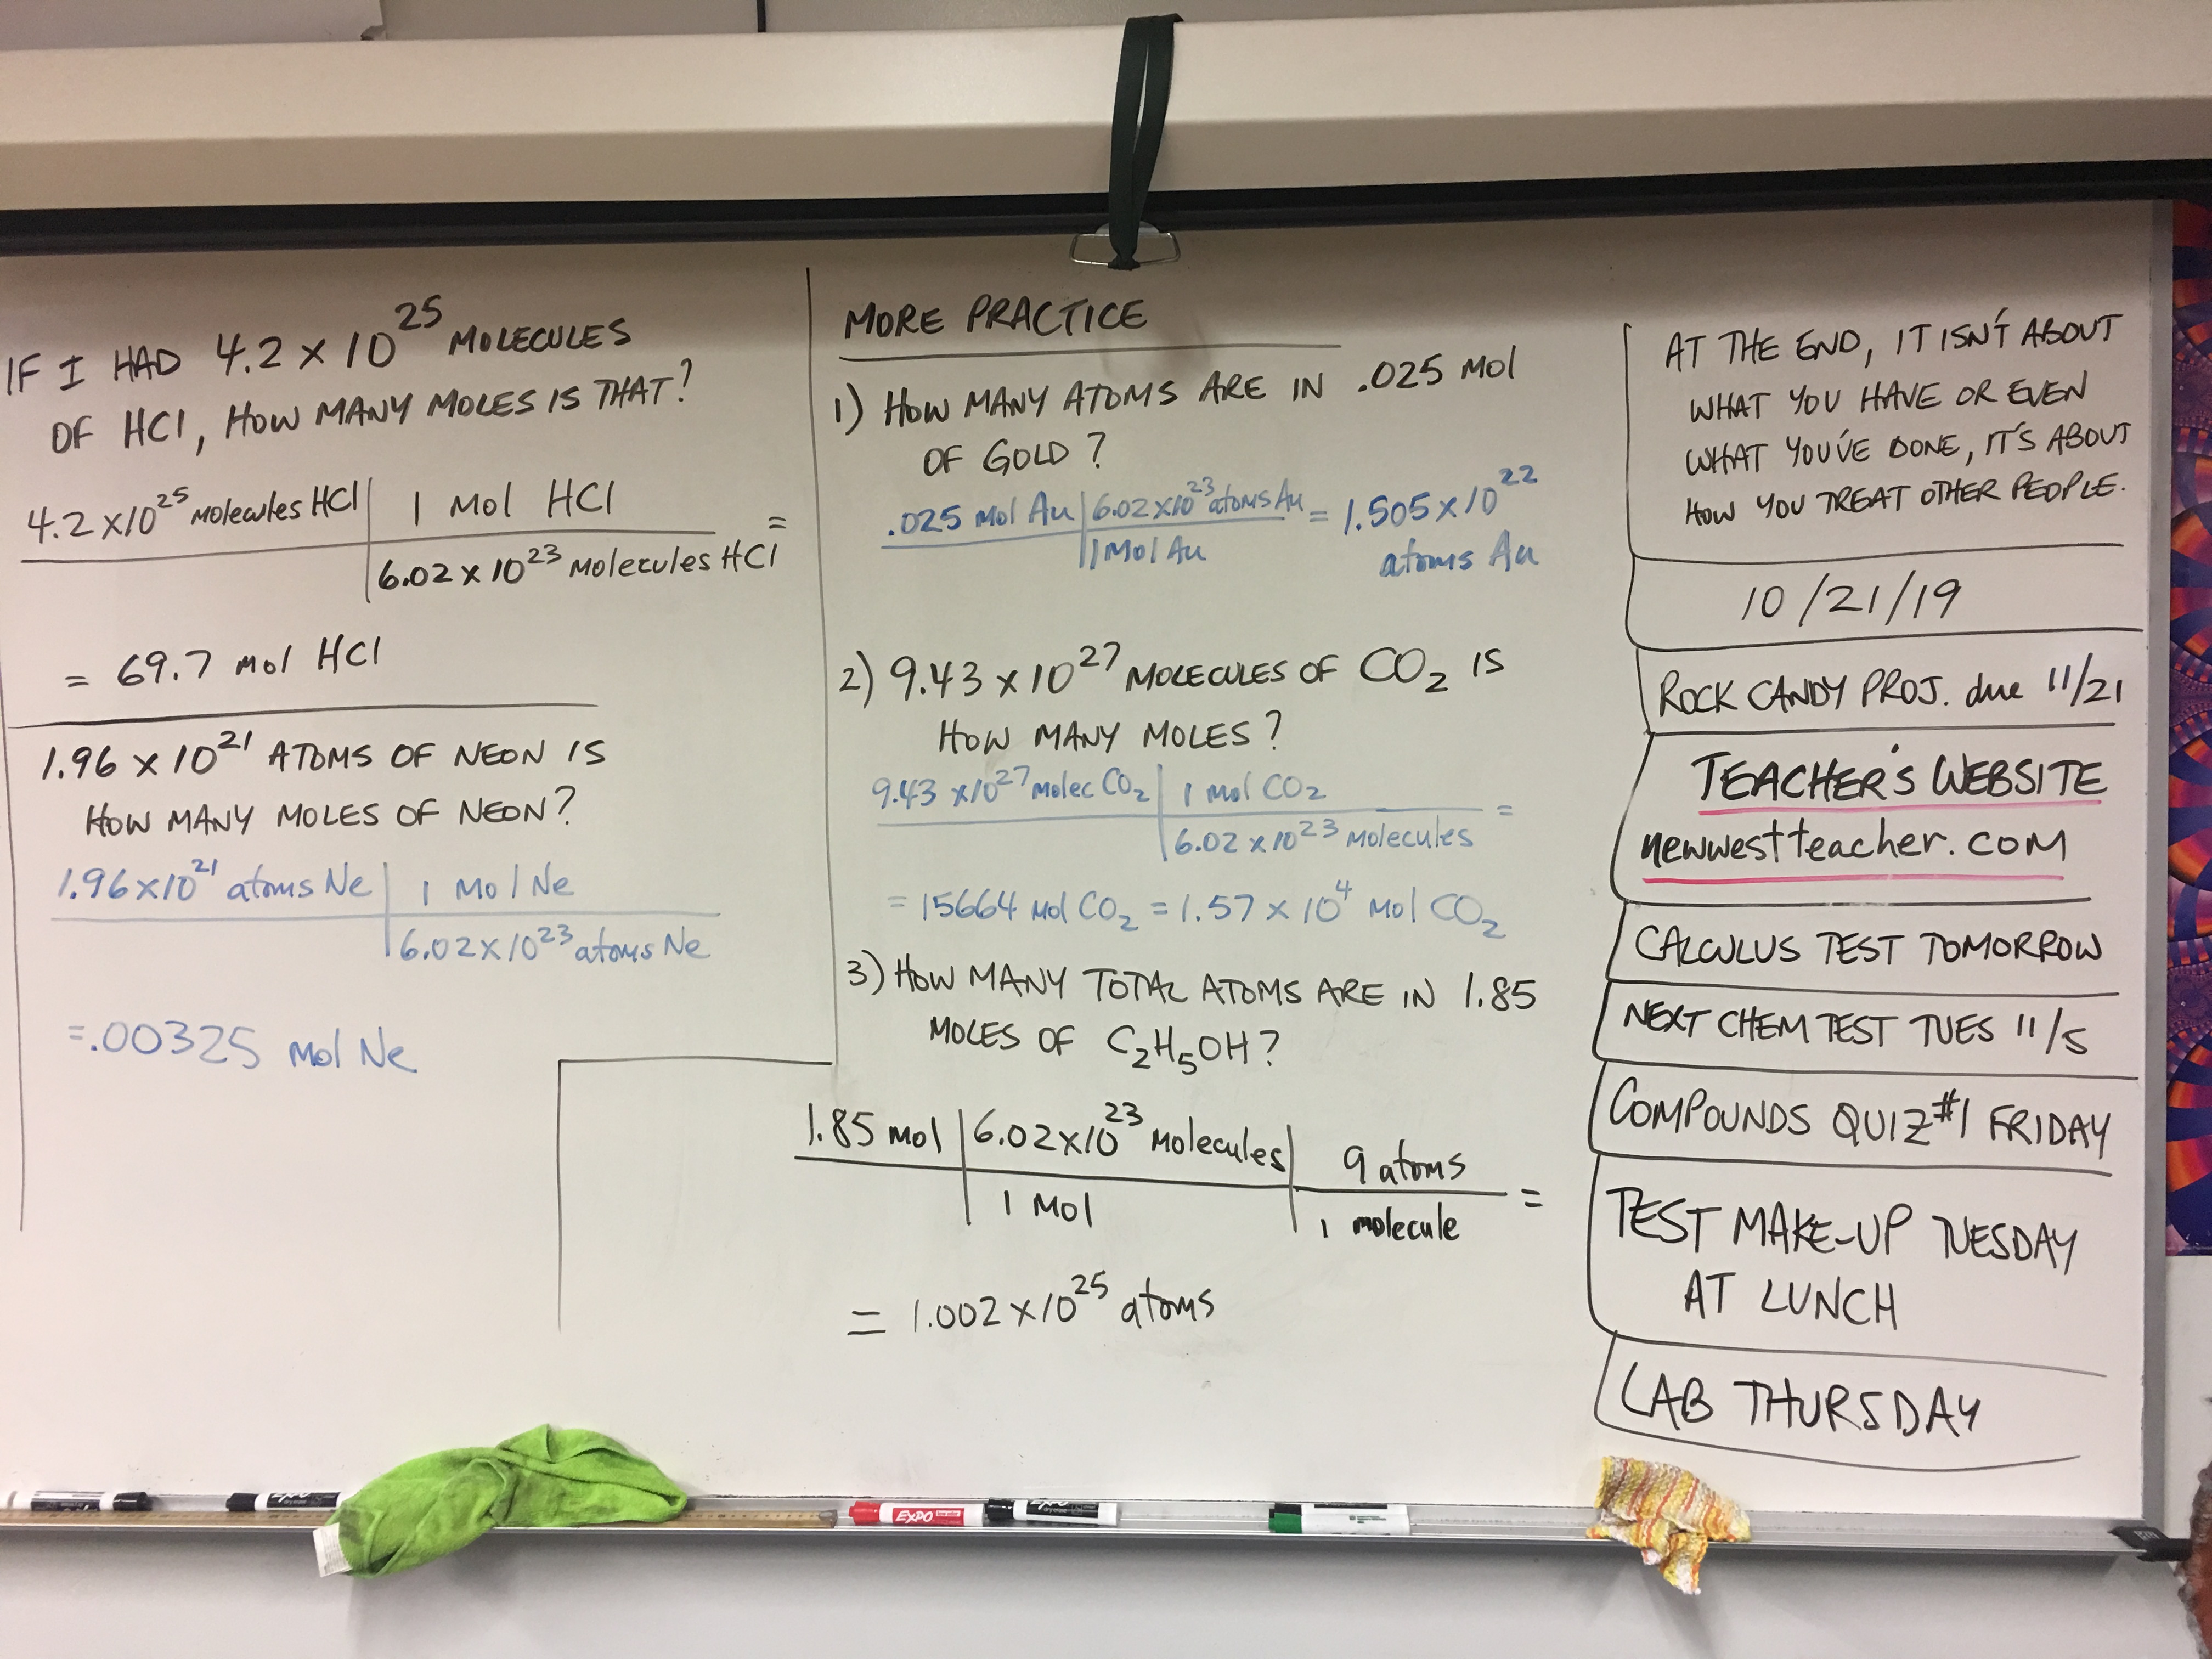 IF I HAD 4.2 x 10²⁵ MOLECULES
OF HCl, HOW MANY MOLES IS THAT?
4.2 x10²⁵ Molecules HCl | 1 Mol HCl =
6.02 x 10²³ Molecules HCl
= 69.7 mol HCl
1.96 x 10²¹ ATOMS OF NEON IS
HOW MANY MOLES OF NEON?
1.96 x10²¹ atoms Ne | 1 Mol Ne
6.02x10²³ atoms Ne
=.00325 mol Ne
MORE PRACTICE
1) HOW MANY ATOMS ARE IN .025 MOl
OF GOLD?
.025 Mol Au | 6.02x10²³ atoms Au = 1.505x10²²
1 Mol Au atoms Au
2) 9.43 x 10²⁷ MOLECULES OF CO₂ IS
HOW MANY MOLES?
9.43 x10²⁷ molec CO₂ | 1 mol CO₂ =
6.02 x 10²³ Molecules
= 15664 Mol CO₂ = 1.57 x 10⁴ Mol CO₂
3) HOW MANY TOTAL ATOMS ARE IN 1.85
MOLES OF C₂H₅OH?
1.85 mol | 6.02x10²³ Molecules | 9 atoms =
1 Mol | 1 molecule
= 1.002 x10²⁵ atoms
AT THE END, IT ISN'T ABOUT
WHAT YOU HAVE OR EVEN
WHAT YOU'VE DONE, IT'S ABOUT
HOW YOU TREAT OTHER PEOPLE.
10/21/19
ROCK CANDY PROJ. due 11/21
TEACHER'S WEBSITE
newwestteacher.com
CALCULUS TEST TOMORROW
NEXT CHEM TEST TUES 11/5
COMPOUNDS QUIZ #1 FRIDAY
TEST MAKE-UP TUESDAY
AT LUNCH
LAB THURSDAY
EXPO
EXPO